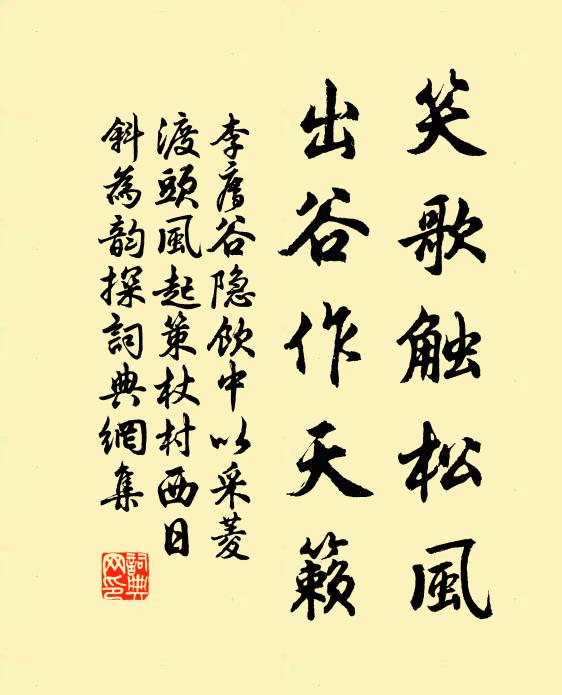 笑歌触松風
出谷作天籟
李膺谷隐飲中以采菱
渡頭風起策杖村西日
斜為韵探詞典網集
詞典網印